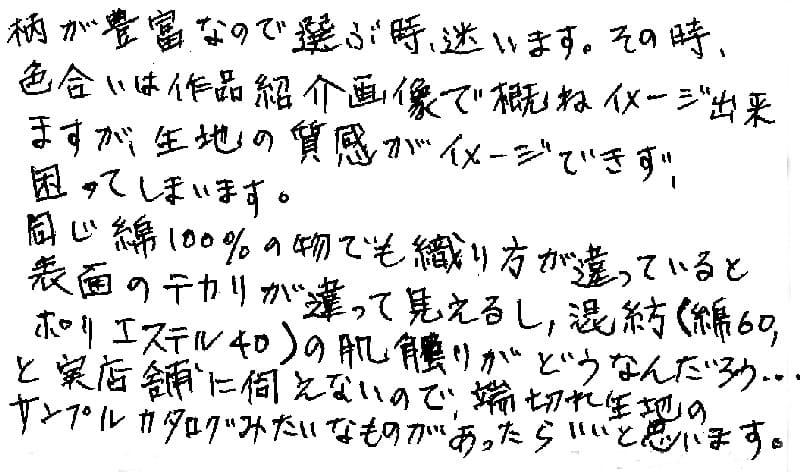 柄が豊富なので選ぶ時、迷います。その時、
色合いは作品紹介画像で概ねイメージ出来
ますが、生地の質感がイメージできず、
困ってしまいます。
同じ綿100%の物でも織り方が違っていると
表面のテカリが違って見えるし、混紡(綿60,
ポリエステル40)の肌触りがどうなんだろう…
と実店舗に伺えないので、端切れ生地の
サンプルカタログみたいなものがあったらいいと思います。